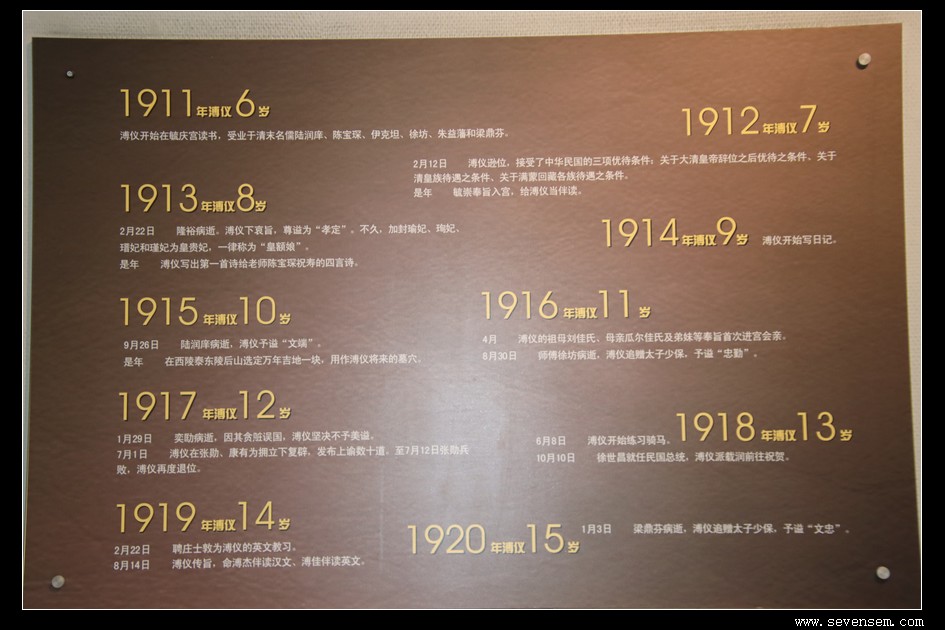 1911年溥仪6岁
溥仪开始在毓庆宫读书，受业于清末名儒陆润庠、陈宝琛、伊克坦、徐坊、朱益藩和梁鼎芬。
1912年溥仪7岁
2月12日 溥仪逊位，接受了中华民国的三项优待条件：关于大清皇帝辞位之后优待之条件、关于
清皇族待遇之条件、关于满蒙回藏各族待遇之条件。
是年 毓崇奉旨入宫，给溥仪当伴读。
1913年溥仪8岁
2月22日 隆裕病逝。溥仪下哀旨，尊谥为“孝定”。不久，加封瑜妃、珣妃、
瑨妃和瑾妃为皇贵妃，一律称为“皇额娘”。
是年 溥仪写出第一首诗给老师陈宝琛祝寿的四言诗。
1914年溥仪9岁 溥仪开始写日记。
1915年溥仪10岁
9月26日 陆润庠病逝，溥仪予谥“文端”。
是年 在西陵泰东陵后山选定万年吉地一块，用作溥仪将来的墓穴。
1916年溥仪11岁
4月 溥仪的祖母刘佳氏、母亲瓜尔佳氏及弟妹等奉旨首次进宫会亲。
8月30日 师傅徐坊病逝，溥仪追赠太子少保，予谥“忠勤”。
1917年溥仪12岁
1月29日 奕劻病逝，因其贪赃误国，溥仪坚决不予美谥。
7月1日 溥仪在张勋、康有为拥立下复辟，发布上谕数十道，至7月12日张勋兵
败，溥仪再度退位。
1918年溥仪13岁
6月8日 溥仪开始练习骑马。
10月10日 徐世昌就任民国总统，溥仪派载润前往祝贺。
1919年溥仪14岁
2月22日 聘庄士敦为溥仪的英文教习。
8月14日 溥仪传旨，命溥杰伴读汉文、溥佳伴读英文。
1920年溥仪15岁 1月3日 梁鼎芬病逝，溥仪追赠太子少保，予谥“文忠”。
www.sevensem.com